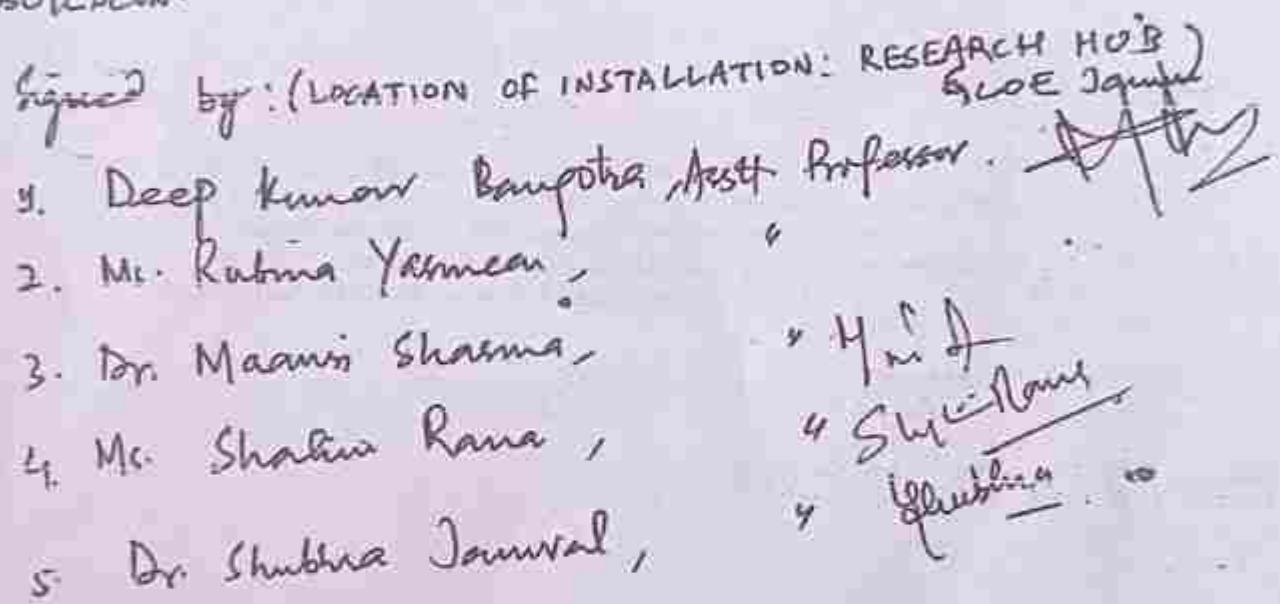 Signed by: (LOCATION OF INSTALLATION: RESEARCH HUB)
GCOE Jammu
1. Deep Kumar Bangotra, Asstt Professor.
2. Ms. Rubina Yasmeen, "
3. Dr. Maansi Sharma, "
4. Ms. Shalini Rana, "
5. Dr. Shubhra Jamwal, " Shubhra